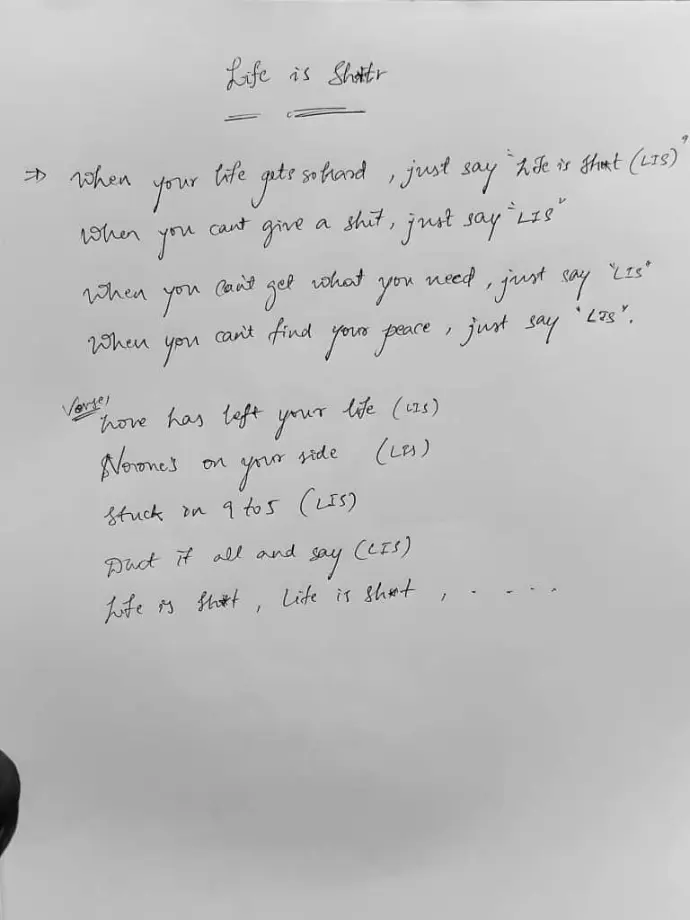 Life is Sh*tr
⇒ When your life gets so hard, just say "Life is Sh*t (LIS)"
When you cant give a shit, just say "LIS"
When you can't get what you need, just say "LIS"
When you can't find your peace, just say "LIS".
Verse,
Love has left your life (LIS)
Noone's on your side (LIS)
Stuck in 9 to 5 (LIS)
it all and say (LIS)
Life is Sh*t, Life is Sh*t, . . . . .